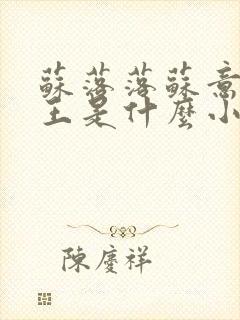 蘇落落蘇意
王是什麼小
陳慶祥